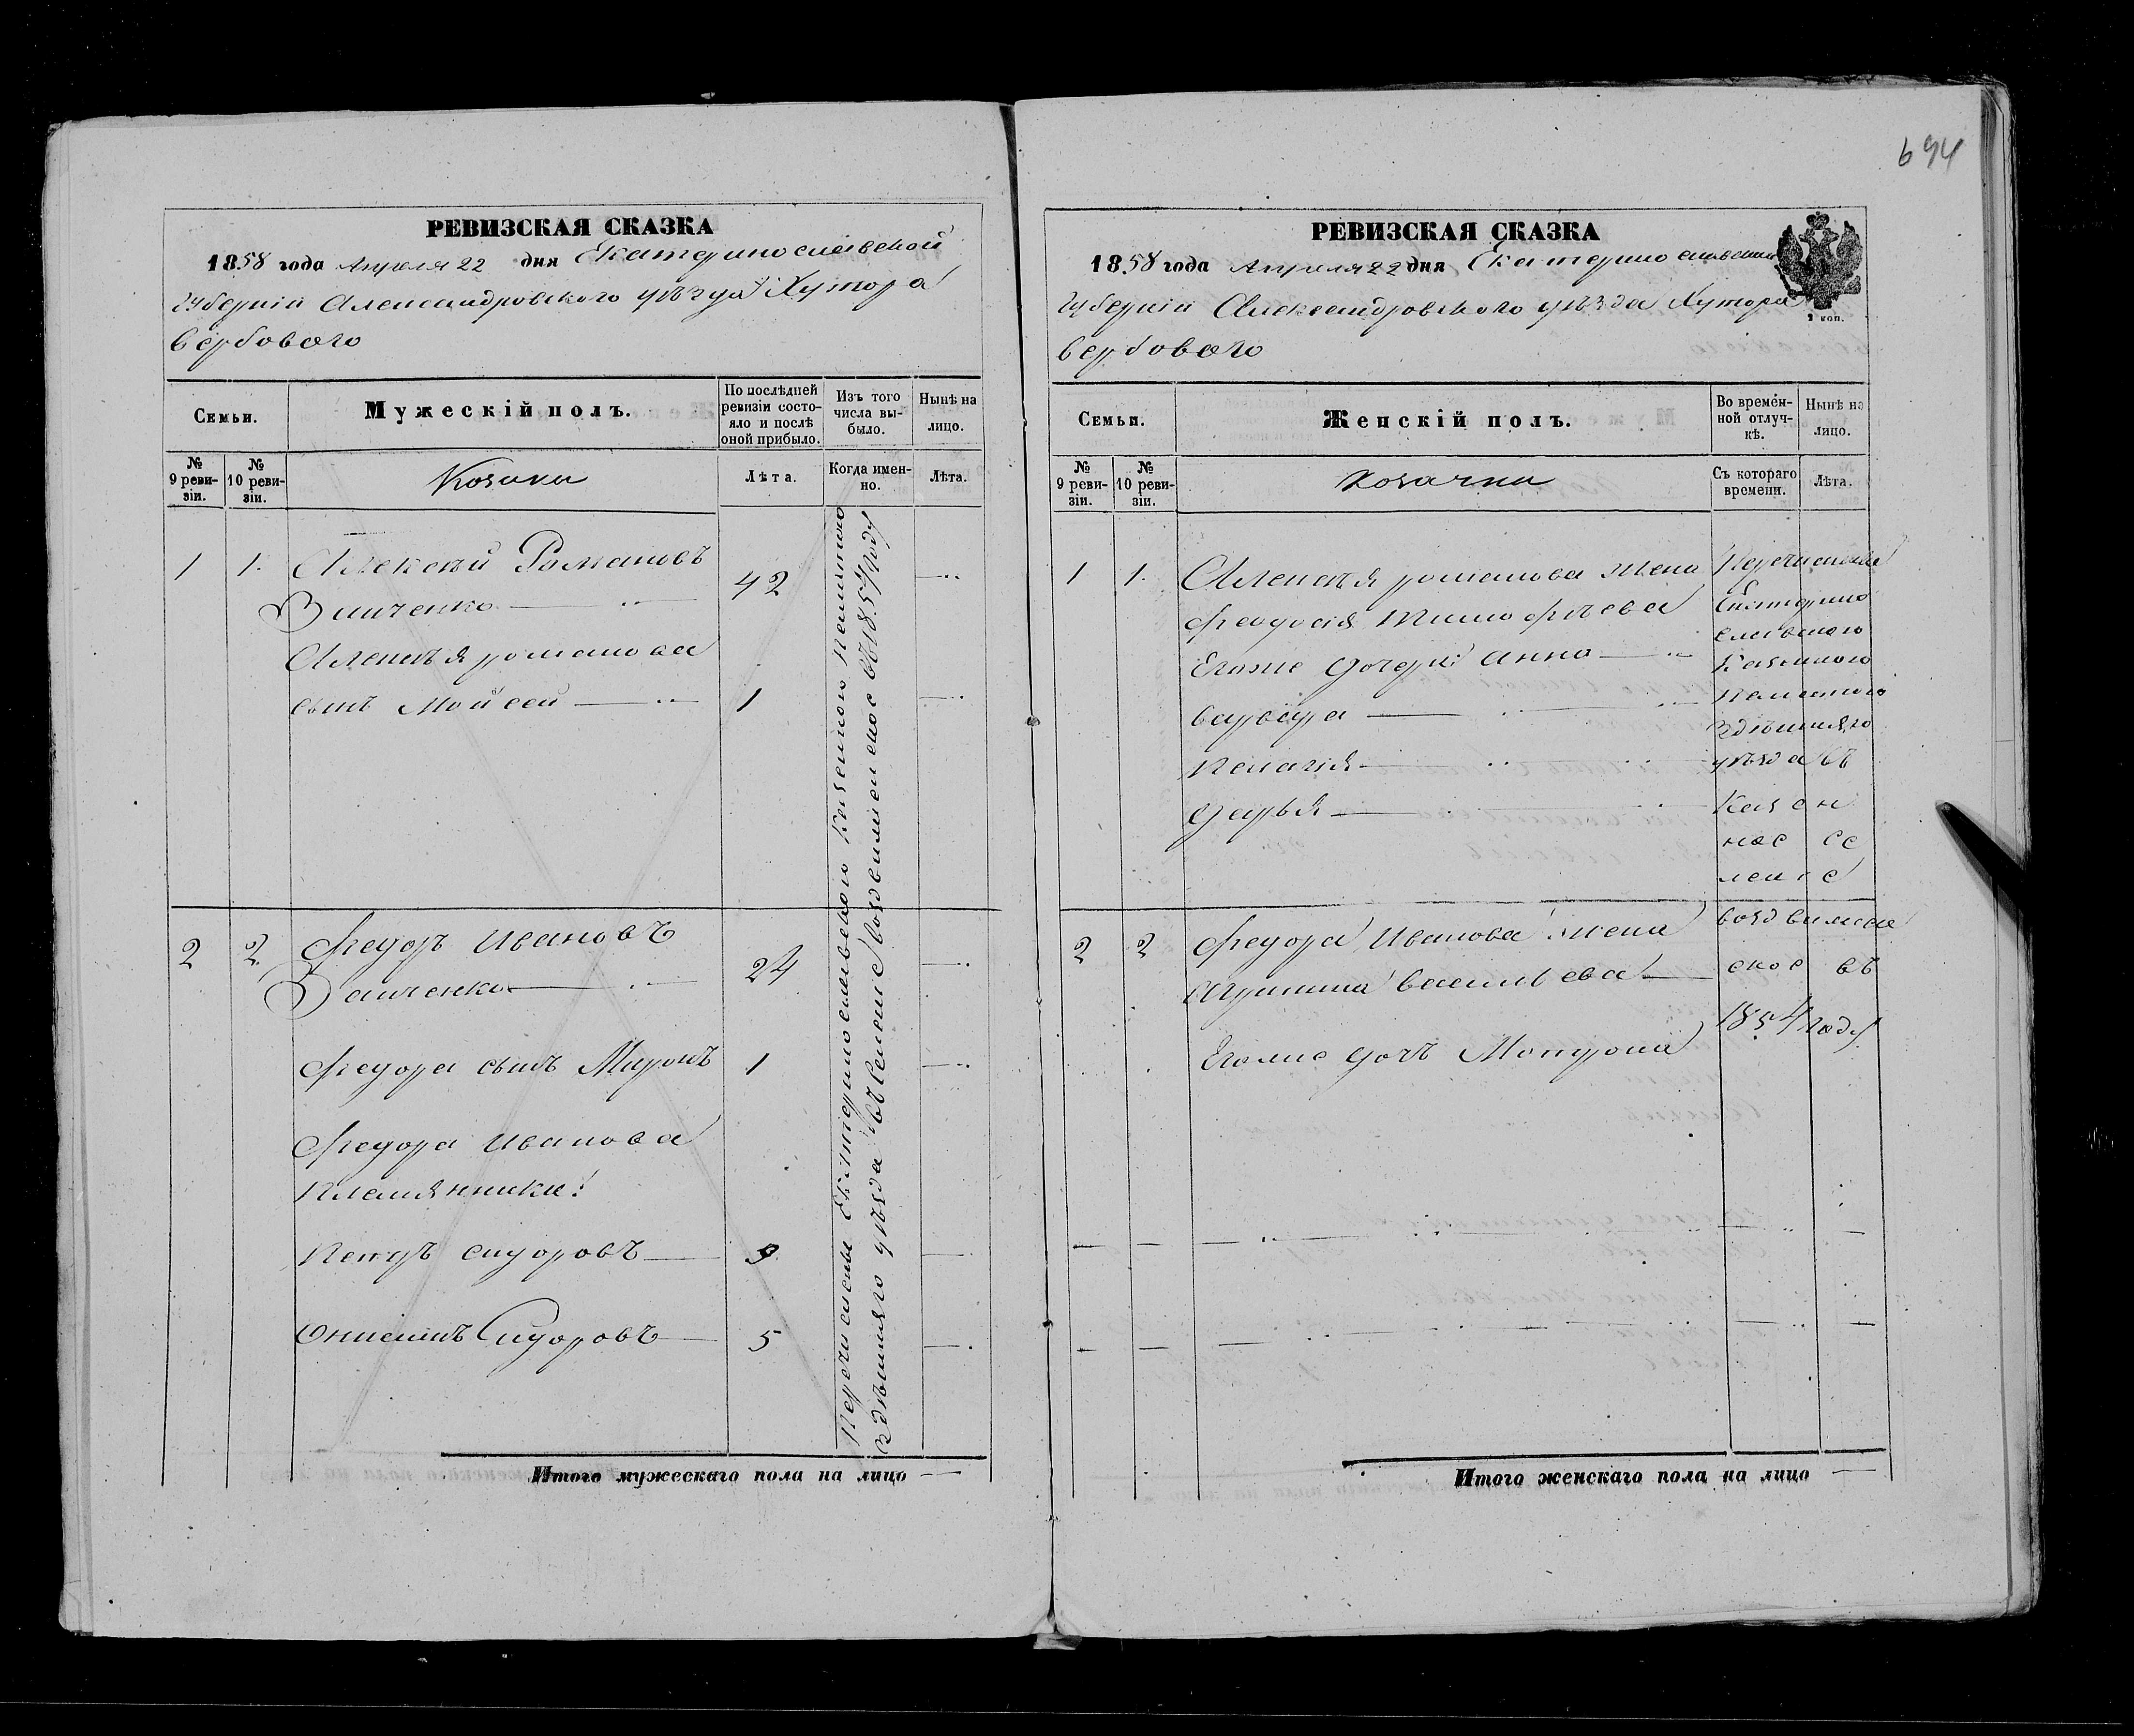 694
РЕВИЗСКАЯ СКАЗКА
1858 года Апреля 22 дня Екатеринославской
губернiи Александровского уѣзда Хутора
Вербового
Семьи.
Мужескій полъ.
По послѣдней ревизіи состояло и послѣ оной прибыло.
Изъ того числа выбыло.
Нынѣ на лицо.
№ 9 ревизіи.
№ 10 ревизіи.
Козаки
Лѣта.
Когда именно.
Лѣта.
1 1. Алексѣй Романовъ
Заиченко 42
Алексѣя романова
сынъ Мойсей 1
2 2 Федоръ Ивановъ
Заиченко 24
Федора сынъ Миронъ 1
Федора Иванова
племянники:
Петръ сидоровъ 9
Онисимъ Сидоровъ 5
Перечислены Екатеринославского Казенного Палатою
здѣшняго уѣзда въ Селение воздвиженское въ 1854 году
Итого мужескаго пола на лицо —
РЕВИЗСКАЯ СКАЗКА
1858 года Апреля 22 дня Екатеринославской
губернiи Александровского уѣзда Хутора
Вербового
1 коп.
Семьи.
Женскій полъ.
Во временной отлучкѣ.
Нынѣ на лицо.
№ 9 ревизіи.
№ 10 ревизіи.
козачки
Съ котораго времени.
Лѣта.
1 1. Алексѣя романова жена
феодосiя тимофѣева
Егоже дочери анна
варвара
пелагiя
дарья
Перечислены
Екатерино
славского
Казенного
Палатою
здѣшняго
уѣзда въ
Казен
ное се
ление
2 2 Федора Иванова жена
васильева
Егоже дочъ Мотрона
воздвижен
ское въ
1854 году
Итого женскаго пола на лицо —